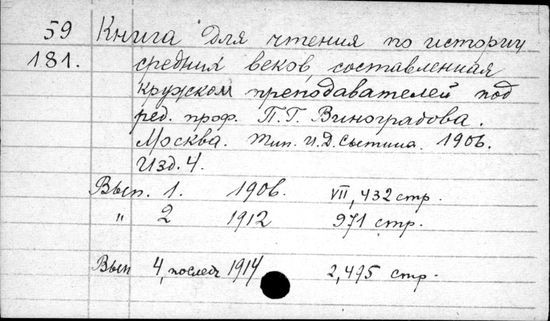 59 Книга для чтения по истории
181. средних веков, составленная
кружком преподавателей под
ред. проф. П.Г. Виноградова.
Москва. Тип. И.Д. Сытина. 1906.
Изд. 4.
Вып. 1. 1906. VII, 432 стр.
" 2 1912 971 стр.
Вып 4, послед 1914 2,495 стр.